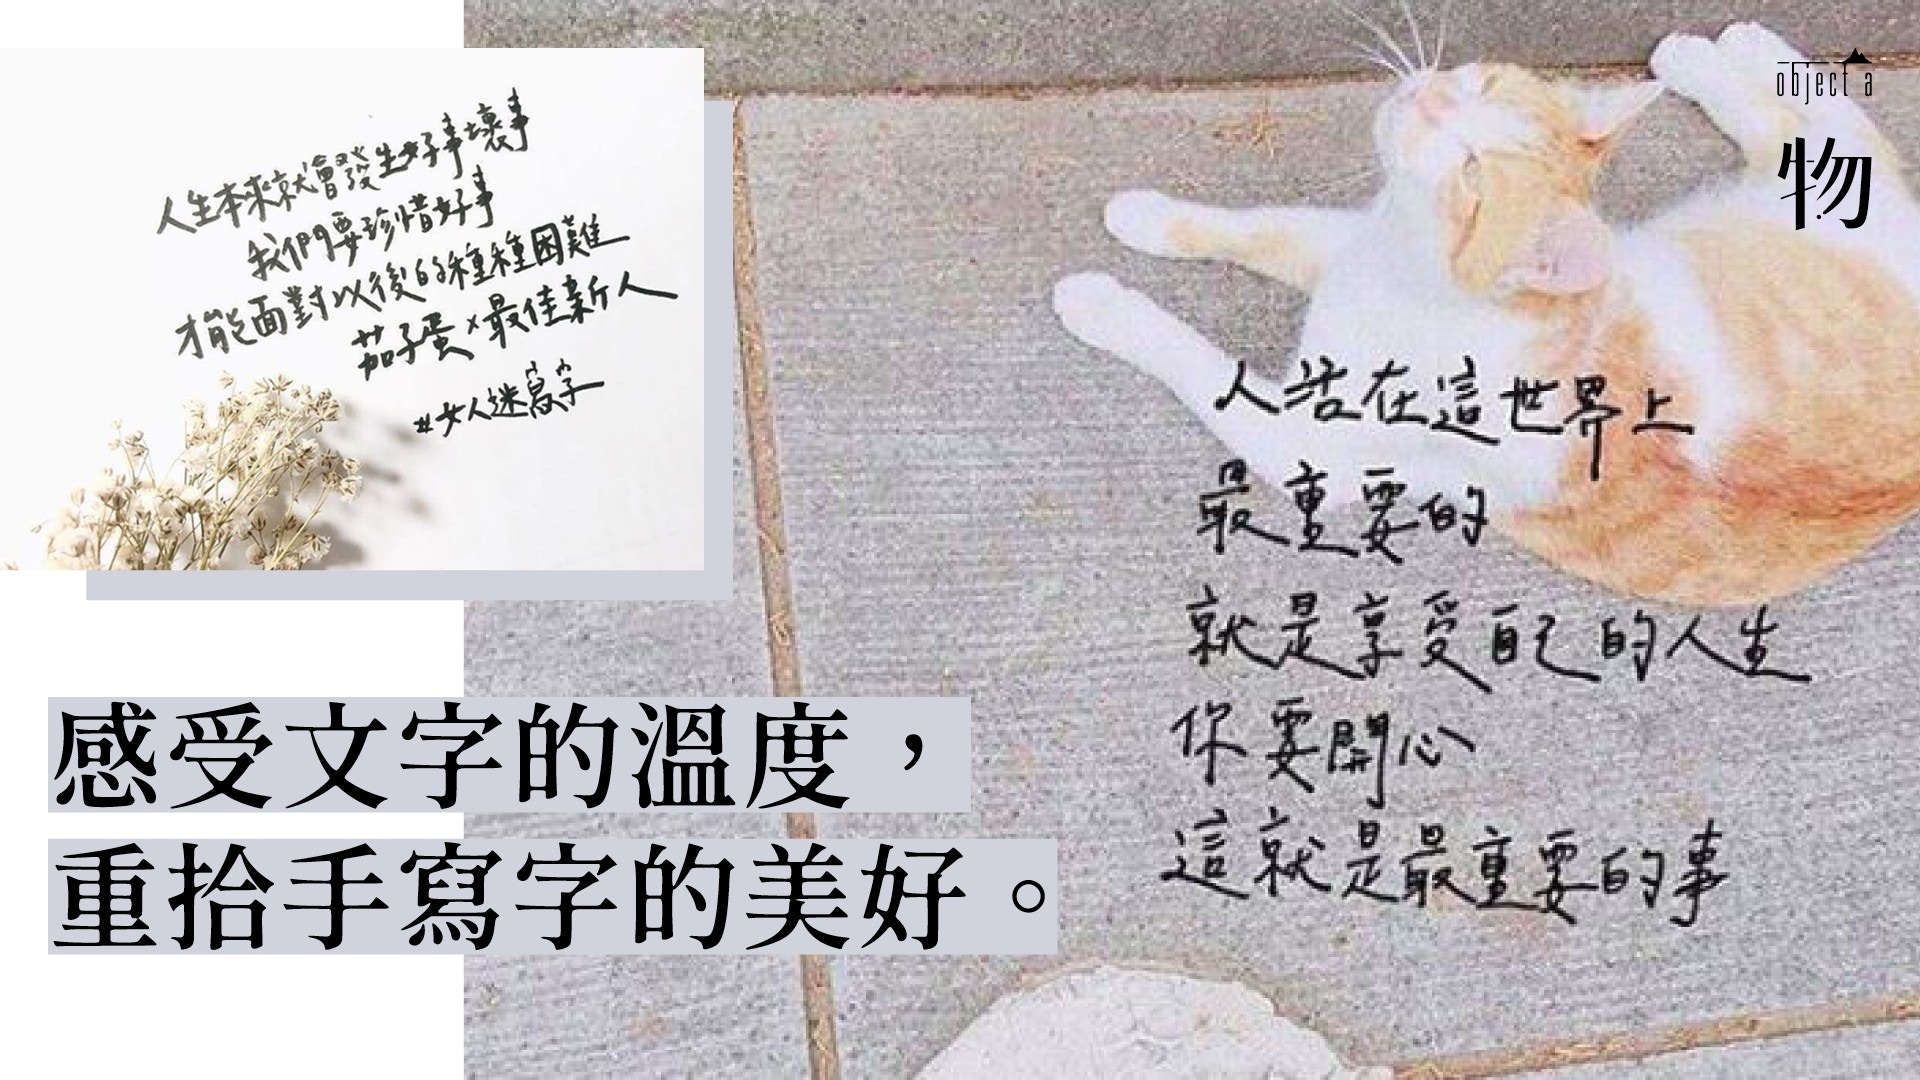 人生本來就會發生好事壞事
我們要珍惜好事
才能面對以後的種種困難
茄子蛋×最佳新人
#女人迷寫字
object a
物
人活在這世界上
最重要的
就是享受自己的人生
你要開心
這就是最重要的事
感受文字的溫度，
重拾手寫字的美好。